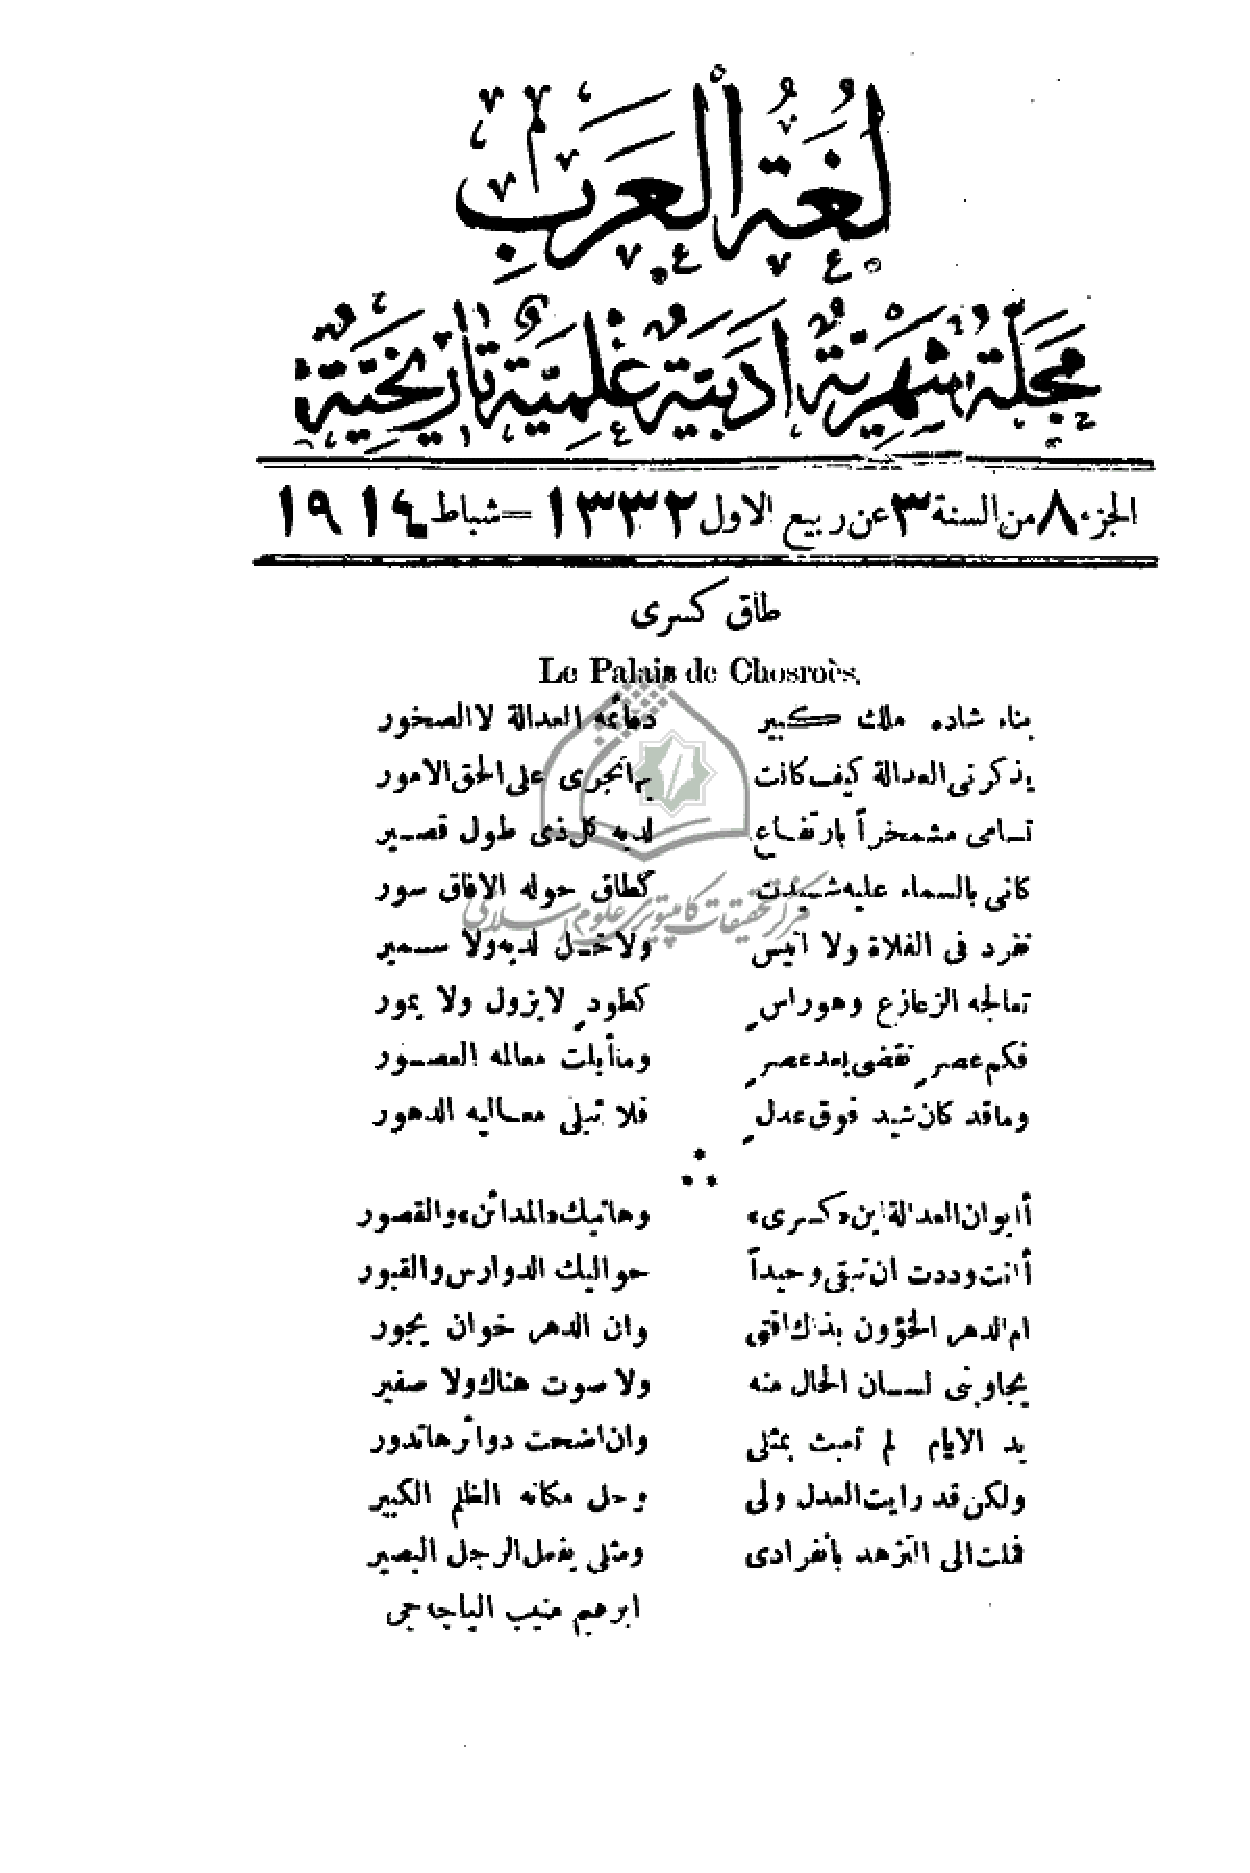 لُغَةُ الْعَرَبِ
مَجَلَّةٌ شَهْرِيَّةٌ اَدَبِيَّةٌ عِلْمِيَّةٌ تَارِيخِيَّةٌ
الجزء ٨ من السنة ٣ عن ربيع الاول ١٣٣٢ = شباط ١٩١٤
طاق كسرى
Le Palais de Chosroès.
بناء شاده ملك كبير دعائمه العدالة لا الصخور
يذكرنى العدالة كيف كانت بها تجرى على الحق الامور
تسامى مشمخراً بارتفاع لديه كل ذى طول قصير
كانى بالسماء عليه شيدت كطاق حوله الافاق سور
تفرد فى الفلاة ولا انيس ولا خل لديه ولا سمير
تعالجه الزعازع وهو راسٍ كطودٍ لا يزول ولا يمور
فكم عصرٍ تقضى بعد عصرٍ وما أبلت معالمه العصور
وما قد كان شيد فوق عدلٍ فلا تبلى معاليه الدهور
أايوان العدالة اين «كسرى» وهاتيك «المدائن» والقصور
أانت وددت ان تبقى وحيداً حواليك الدوارس والقبور
ام الدهر الخؤون بذاك افتى وان الدهر خوان يجور
يجاوبنى لسان الحال منه ولا صوت هناك ولا صفير
يد الايام لم تعبث بمثلى وان اضحت دوائرها تدور
ولكن قد رايت العدل ولى وحل مكانه الظلم الكبير
فملت الى التزهد بأنفرادى ومثلى يفعل الرجل البصير
ابرهيم منيب الباجه جى
مركز تحقيقات كامپيوترى علوم اسلامى